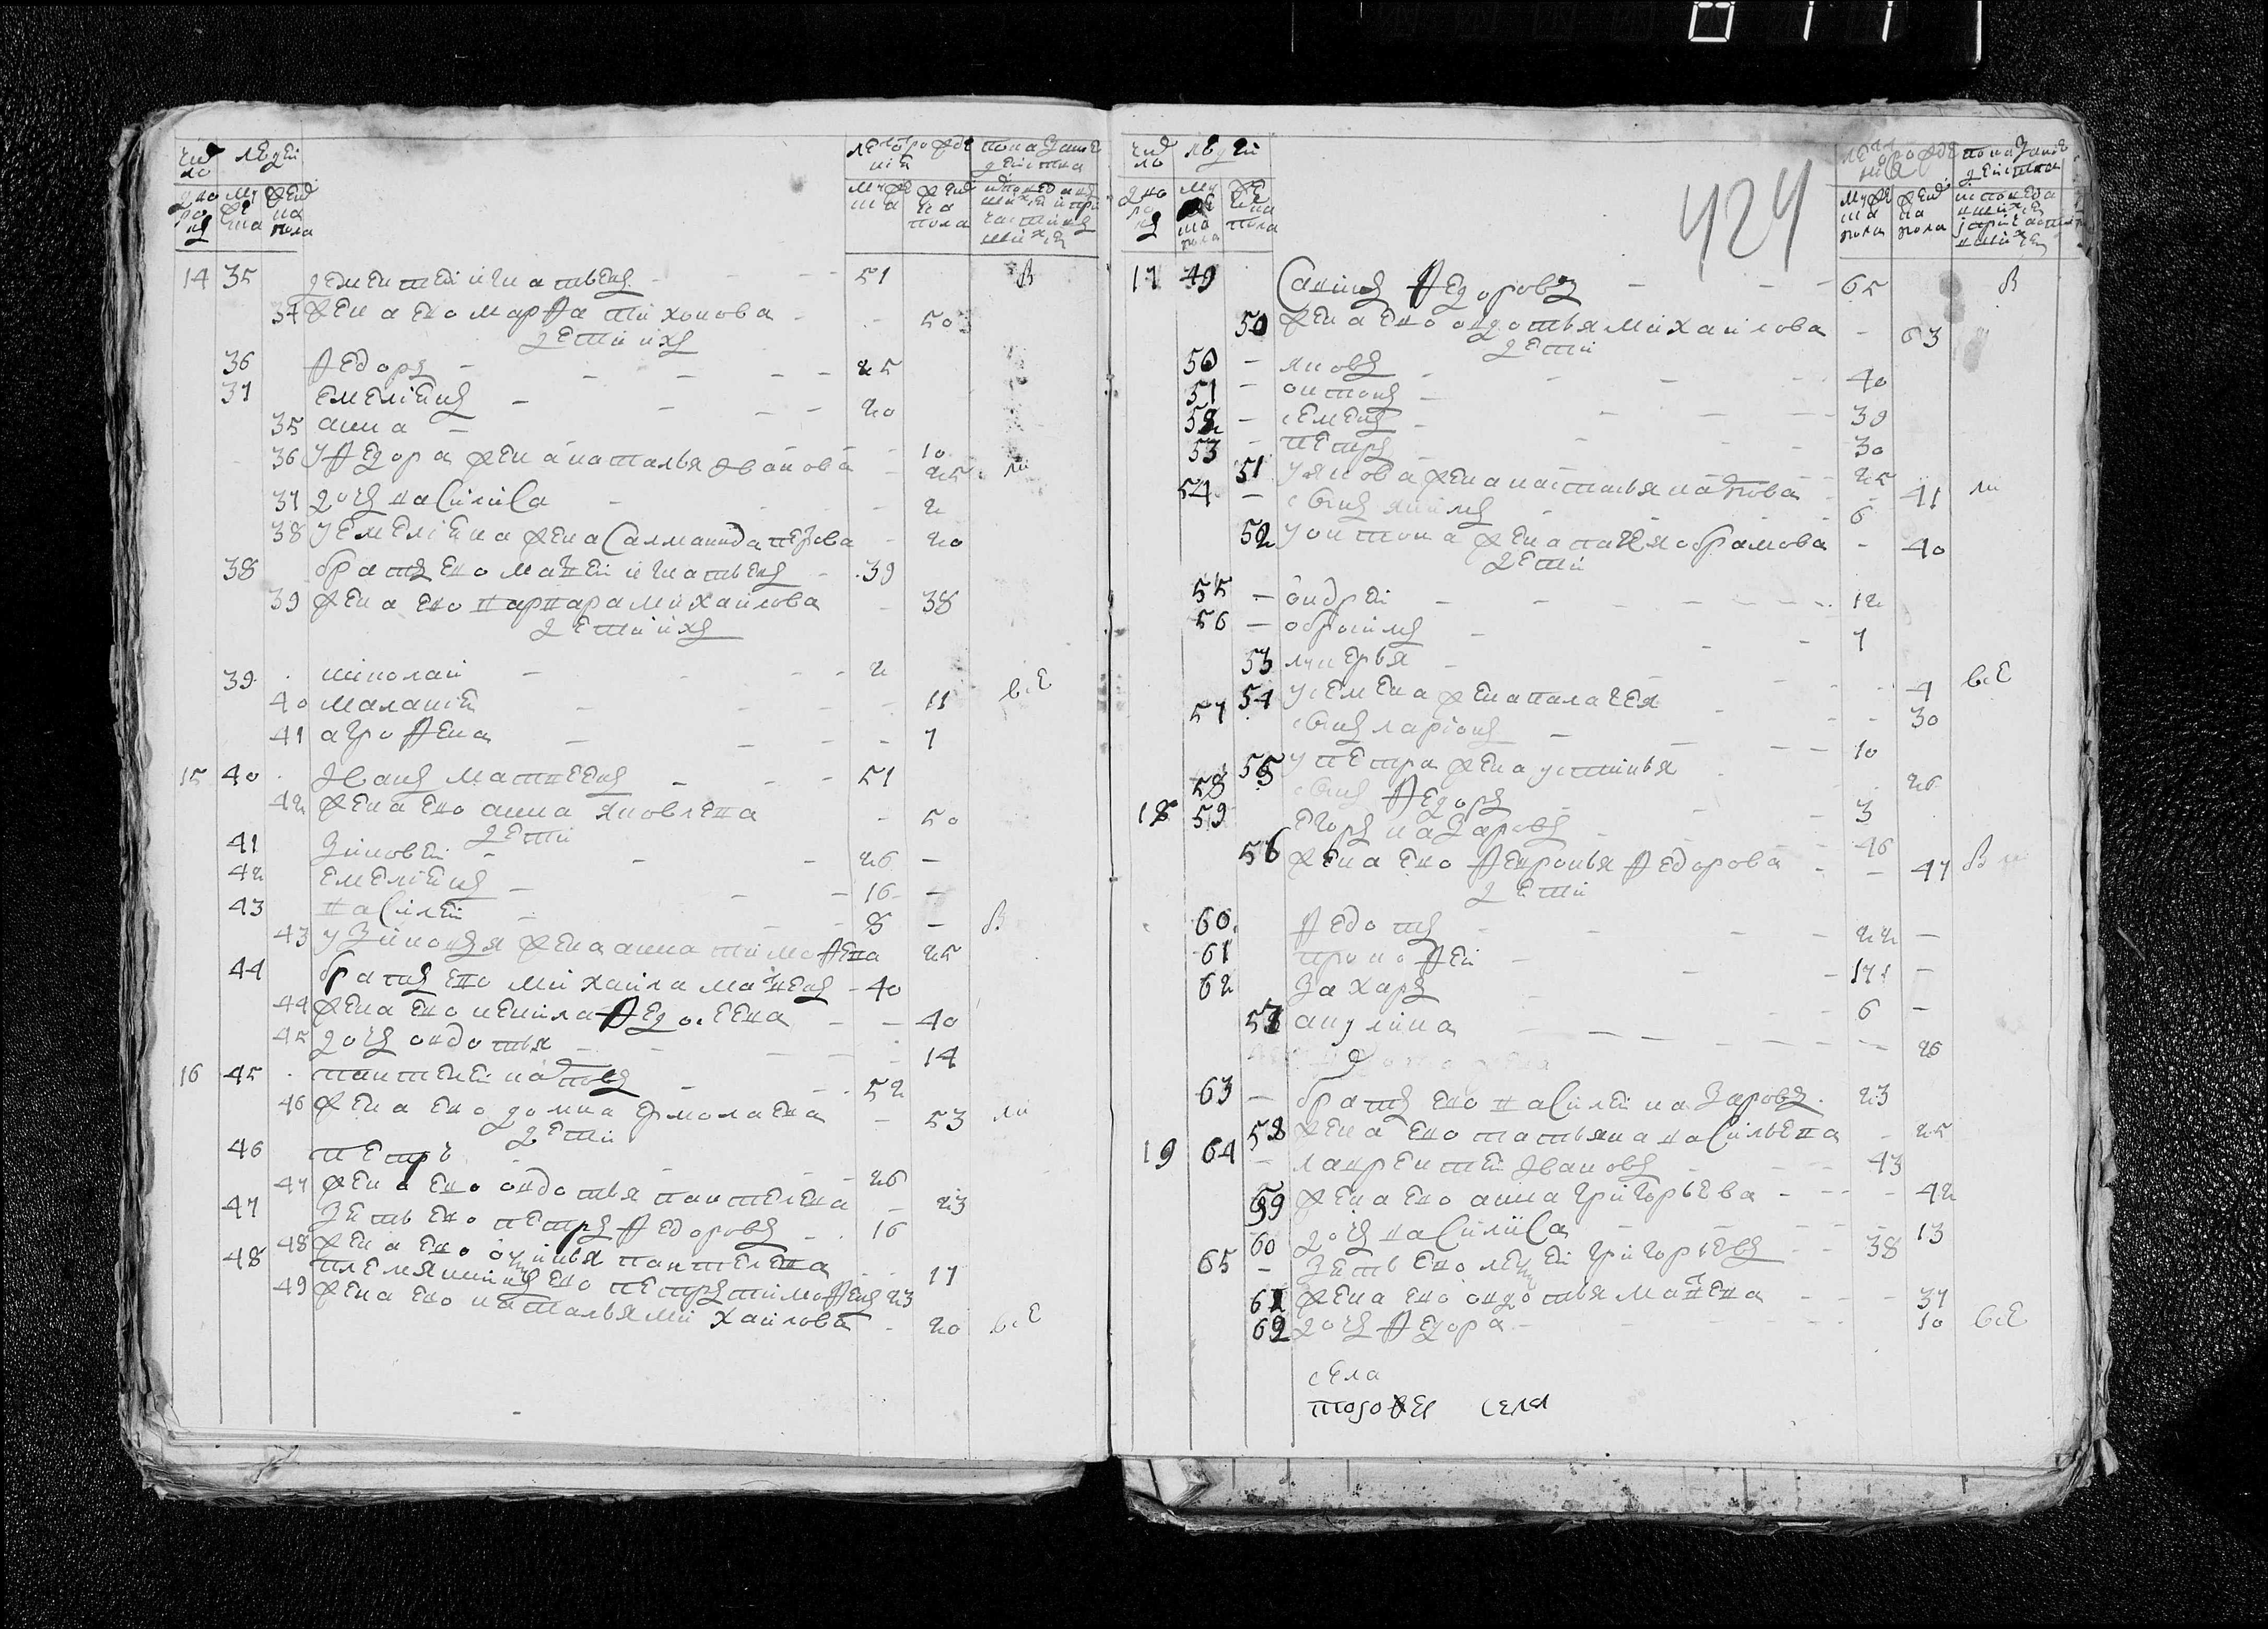 число людей
дворовъ мужеска женска пола
лет от рождения
мужеска женска пола
показание действа
исповедавшихся и причастившихся
14 35 дементей игнатьевъ 51 в
34 жена ево марфа тихонова 50
дети ихъ
36 федоръ 25
37 емелиянъ 20
35 анна 10
36 у федора жена наталья иванова 25
37 дочь василиса 2
38 у емелияна жена саламанида 20
38 братъ ево матвей игнатьевъ 39
39 жена ево варвара михайлова 38
дети ихъ
39 николай 2
40 малания 11 все
41 аграфена 7
15 40 иванъ матвеевъ 51
42 жена ево анна яковлева 50
дети
41 зиновей 26
42 емелиянъ 16
43 василей 8 в
43 у зиновья жена анна тимофева 25
44 братъ ево михайла матвевъ 40
44 жена ево ненила федосеева 40
45 дочь овдотья 14
16 45 пантелей 52
46 жена ево домна ермолаева 53
дети
46 петръ 26
47 жена ево овдотья пантелева 23
47 зять ево петръ федоровъ 16
48 жена ево пантелева 17
48 племянникъ ево петръ тимофевъ 23
49 жена ево наталья михайлова 20 все
424
число людей
дворовъ мужеска пола женска пола
лет от рождения
мужеска пола женска пола
показание действа
исповедавшихся и причастившихся
17 49 савинъ федоровъ 65 в
50 жена ево овдотья михайлова 63
дети
50 яковъ 40
51 онтонъ 39
52 семенъ 30
53 петръ 25
51 у якова жена настасья 41
54 сынъ якимъ 6
52 у онтона жена обрамова 40
дети
55 ондрей 12
56 обросимъ 7
53 лукерья 4 все
54 у семена жена палагея 30
57 сынъ ларионъ 10
55 у петра жена устинья 26
58 сынъ федоръ 3
18 59 егоръ назаровъ 46
56 жена ево февронья федорова 47 в
дети
60 федотъ 22
61 прокофей 17
62 захаръ 6
57 акулина 26
63 братъ ево василей назаровъ 23
58 жена ево татьяна васильева 25
19 64 лаврентей ивановъ 43
59 жена ево анна григорьева 42
60 дочь василиса 13
65 зять ево григорьевъ 38
61 жена ево овдотья матвева 37
62 дочь федора 10 все
села
тогожъ села